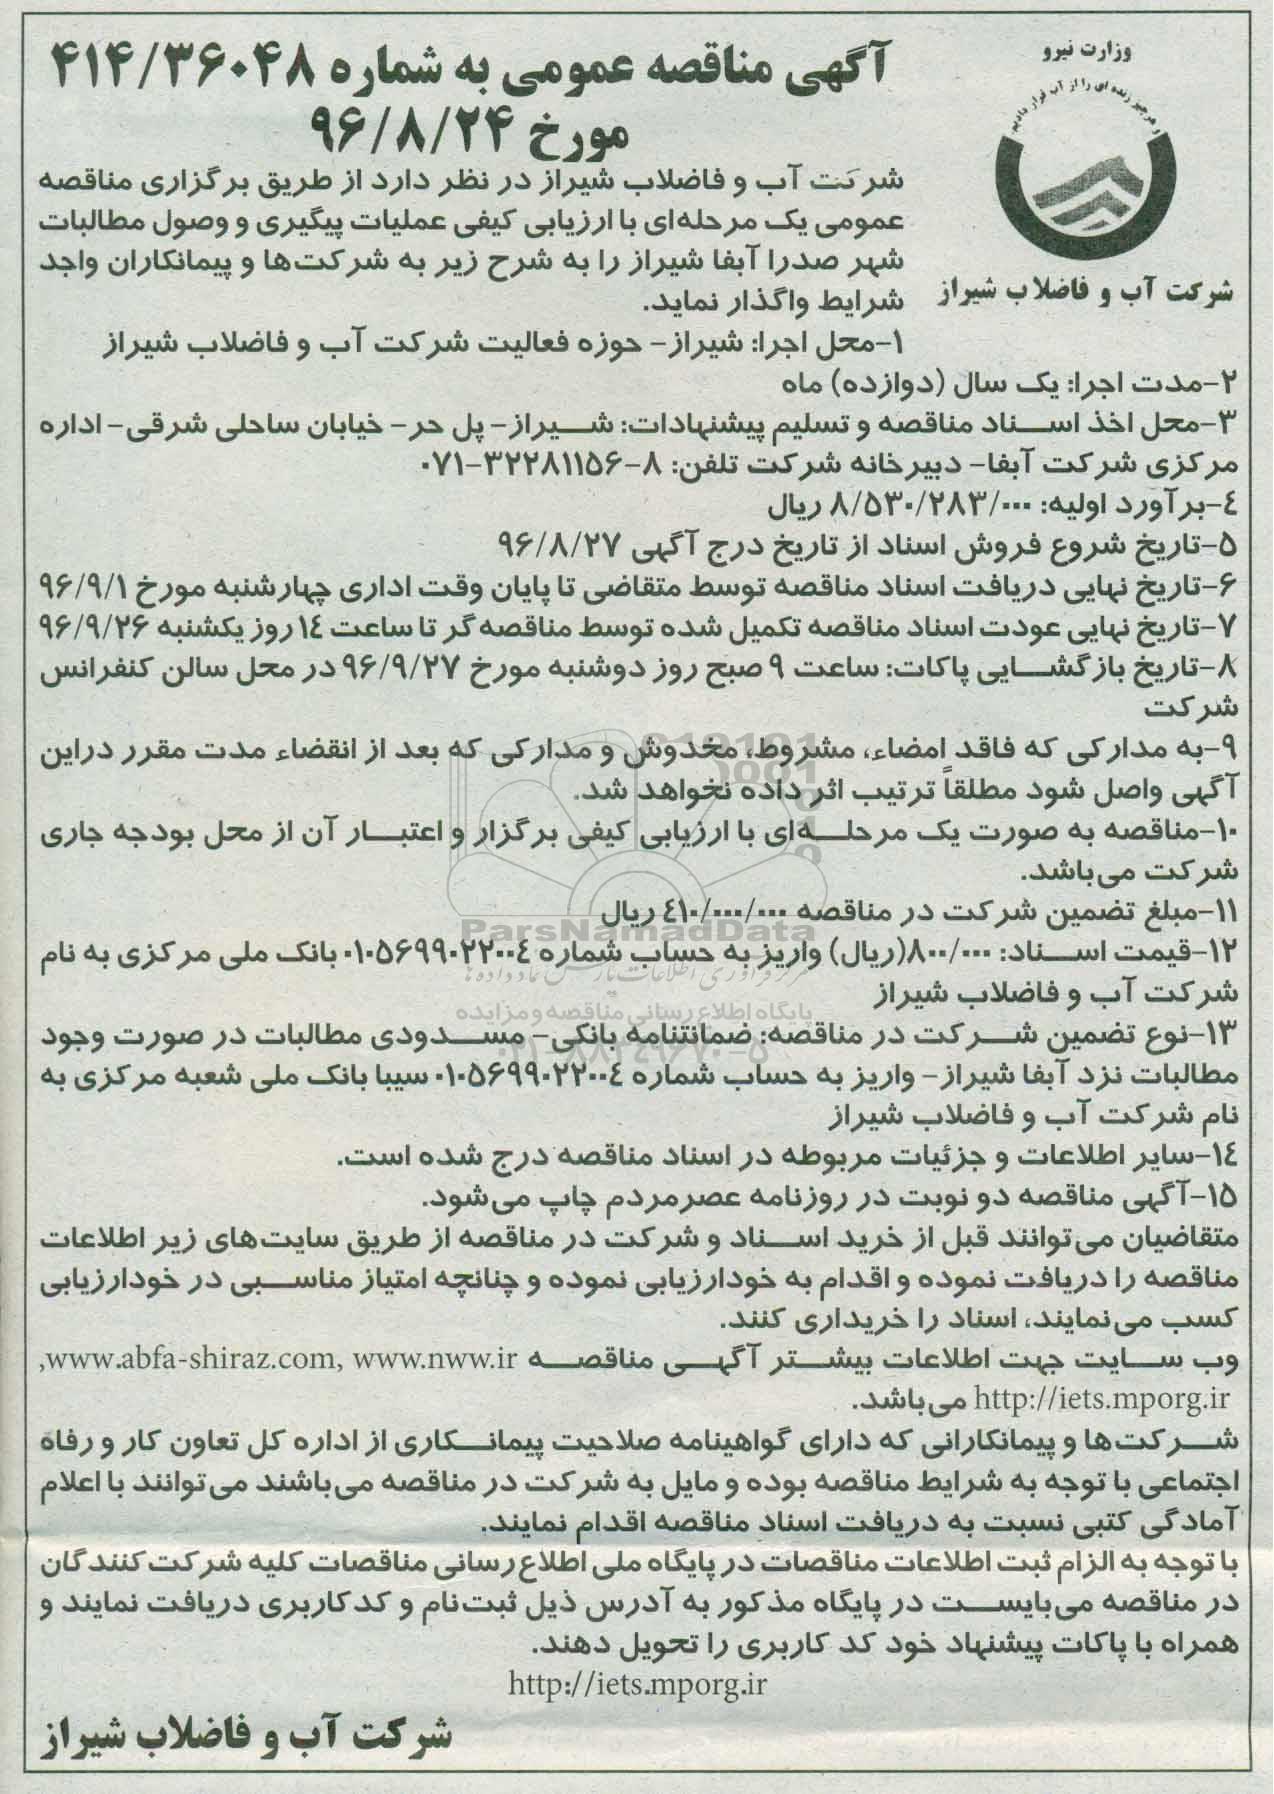 وزارت نیرو
و هر چیز زنده ای را از آب قرار دادیم
شرکت آب و فاضلاب شیراز
آگهی مناقصه عمومی به شماره ۴۱۴/۳۶۰۴۸
مورخ ۹۶/۸/۲۴
شرکت آب و فاضلاب شیراز در نظر دارد از طریق برگزاری مناقصه
عمومی یک مرحله‌ای با ارزیابی کیفی عملیات پیگیری و وصول مطالبات
شهر صدرا آبفا شیراز را به شرح زیر به شرکت‌ها و پیمانکاران واجد
شرایط واگذار نماید.
۱-محل اجرا: شیراز- حوزه فعالیت شرکت آب و فاضلاب شیراز
۲-مدت اجرا: یک سال (دوازده) ماه
۳-محل اخذ اسناد مناقصه و تسلیم پیشنهادات: شیراز- پل حر- خیابان ساحلی شرقی- اداره
مرکزی شرکت آبفا- دبیرخانه شرکت تلفن: ۸-۳۲۲۸۱۱۵۶-۰۷۱
۴-برآورد اولیه: ۸/۵۳۰/۲۸۳/۰۰۰ ریال
۵-تاریخ شروع فروش اسناد از تاریخ درج آگهی ۹۶/۸/۲۷
۶-تاریخ نهایی دریافت اسناد مناقصه توسط متقاضی تا پایان وقت اداری چهارشنبه مورخ ۹۶/۹/۱
۷-تاریخ نهایی عودت اسناد مناقصه تکمیل شده توسط مناقصه گر تا ساعت ۱۴ روز یکشنبه ۹۶/۹/۲۶
۸-تاریخ بازگشایی پاکات: ساعت ۹ صبح روز دوشنبه مورخ ۹۶/۹/۲۷ در محل سالن کنفرانس
شرکت
۹-به مدارکی که فاقد امضاء، مشروط، مخدوش و مدارکی که بعد از انقضاء مدت مقرر دراین
آگهی واصل شود مطلقاً ترتیب اثر داده نخواهد شد.
۱۰-مناقصه به صورت یک مرحله‌ای با ارزیابی کیفی برگزار و اعتبار آن از محل بودجه جاری
شرکت می‌باشد.
۱۱-مبلغ تضمین شرکت در مناقصه ۴۱۰/۰۰۰/۰۰۰ ریال
ParsNamadData
۱۲-قیمت اسناد: ۸۰۰/۰۰۰(ریال) واریز به حساب شماره ۰۱۰۵۶۹۹۰۲۲۰۰۴ بانک ملی مرکزی به نام
شرکت آب و فاضلاب شیراز
پایگاه اطلاع رسانی مناقصه و مزایده
۱۳-نوع تضمین شرکت در مناقصه: ضمانتنامه بانکی- مسدودی مطالبات در صورت وجود
۰۲۱-۸۸۳۴۹۶۷۰-۵
مطالبات نزد آبفا شیراز- واریز به حساب شماره ۰۱۰۵۶۹۹۰۲۲۰۰۴ سیبا بانک ملی شعبه مرکزی به
نام شرکت آب و فاضلاب شیراز
۱۴-سایر اطلاعات و جزئیات مربوطه در اسناد مناقصه درج شده است.
۱۵-آگهی مناقصه دو نوبت در روزنامه عصرمردم چاپ می‌شود.
متقاضیان می‌توانند قبل از خرید اسناد و شرکت در مناقصه از طریق سایت‌های زیر اطلاعات
مناقصه را دریافت نموده و اقدام به خودارزیابی نموده و چنانچه امتیاز مناسبی در خودارزیابی
کسب می‌نمایند، اسناد را خریداری کنند.
وب سایت جهت اطلاعات بیشتر آگهی مناقصه www.abfa-shiraz.com, www.nww.ir,
http://iets.mporg.ir می‌باشد.
شرکت‌ها و پیمانکارانی که دارای گواهینامه صلاحیت پیمانکاری از اداره کل تعاون کار و رفاه
اجتماعی با توجه به شرایط مناقصه بوده و مایل به شرکت در مناقصه می‌باشند می‌توانند با اعلام
آمادگی کتبی نسبت به دریافت اسناد مناقصه اقدام نمایند.
با توجه به الزام ثبت اطلاعات مناقصات در پایگاه ملی اطلاع رسانی مناقصات کلیه شرکت کنندگان
در مناقصه می‌بایست در پایگاه مذکور به آدرس ذیل ثبت‌نام و کد کاربری دریافت نمایند و
همراه با پاکات پیشنهاد خود کد کاربری را تحویل دهند.
http://iets.mporg.ir
شرکت آب و فاضلاب شیراز